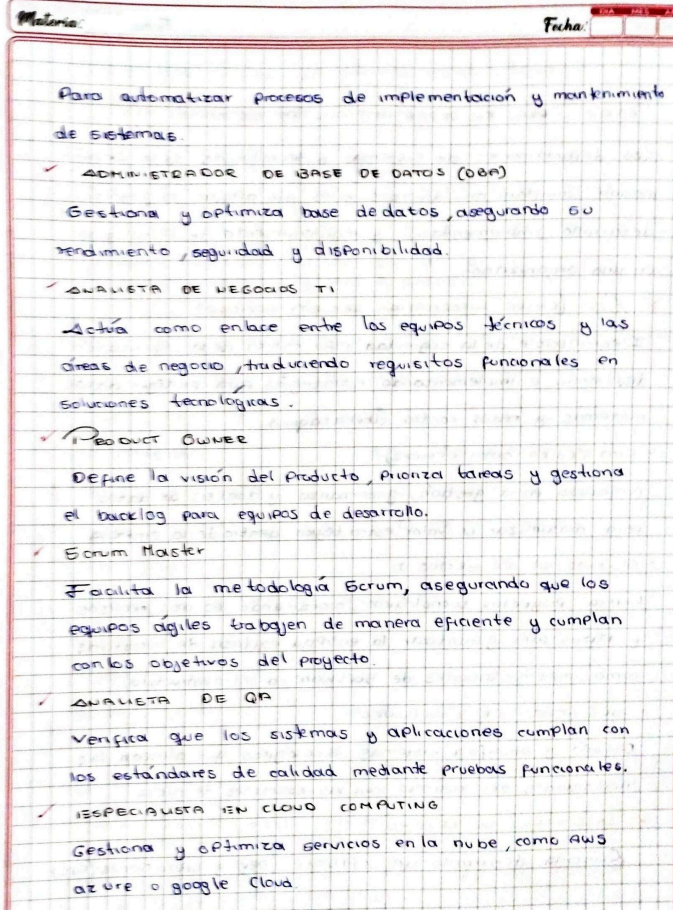 Materia:
Fecha:
DIA MES A
Para automatizar procesos de implementación y mantenimiento
de sistemas.
ADMINISTRADOR DE BASE DE DATOS (DBA)
Gestiona y optimiza base de datos, asegurando su
rendimiento, seguridad y disponibilidad.
ANALISTA DE NEGOCIOS TI
Actúa como enlace entre los equipos técnicos y las
áreas de negocio, traduciendo requisitos funcionales en
soluciones tecnológicas.
PRODUCT OWNER
Define la visión del producto, prioriza tareas y gestiona
el backlog para equipos de desarrollo.
Scrum Master
Facilita la metodología Scrum, asegurando que los
equipos ágiles trabajen de manera eficiente y cumplan
con los objetivos del proyecto.
ANALISTA DE QA
Verifica que los sistemas y aplicaciones cumplan con
los estándares de calidad mediante pruebas funcionales.
ESPECIALISTA EN CLOUD COMPUTING
Gestiona y optimiza servicios en la nube, como AWS
azure o google Cloud